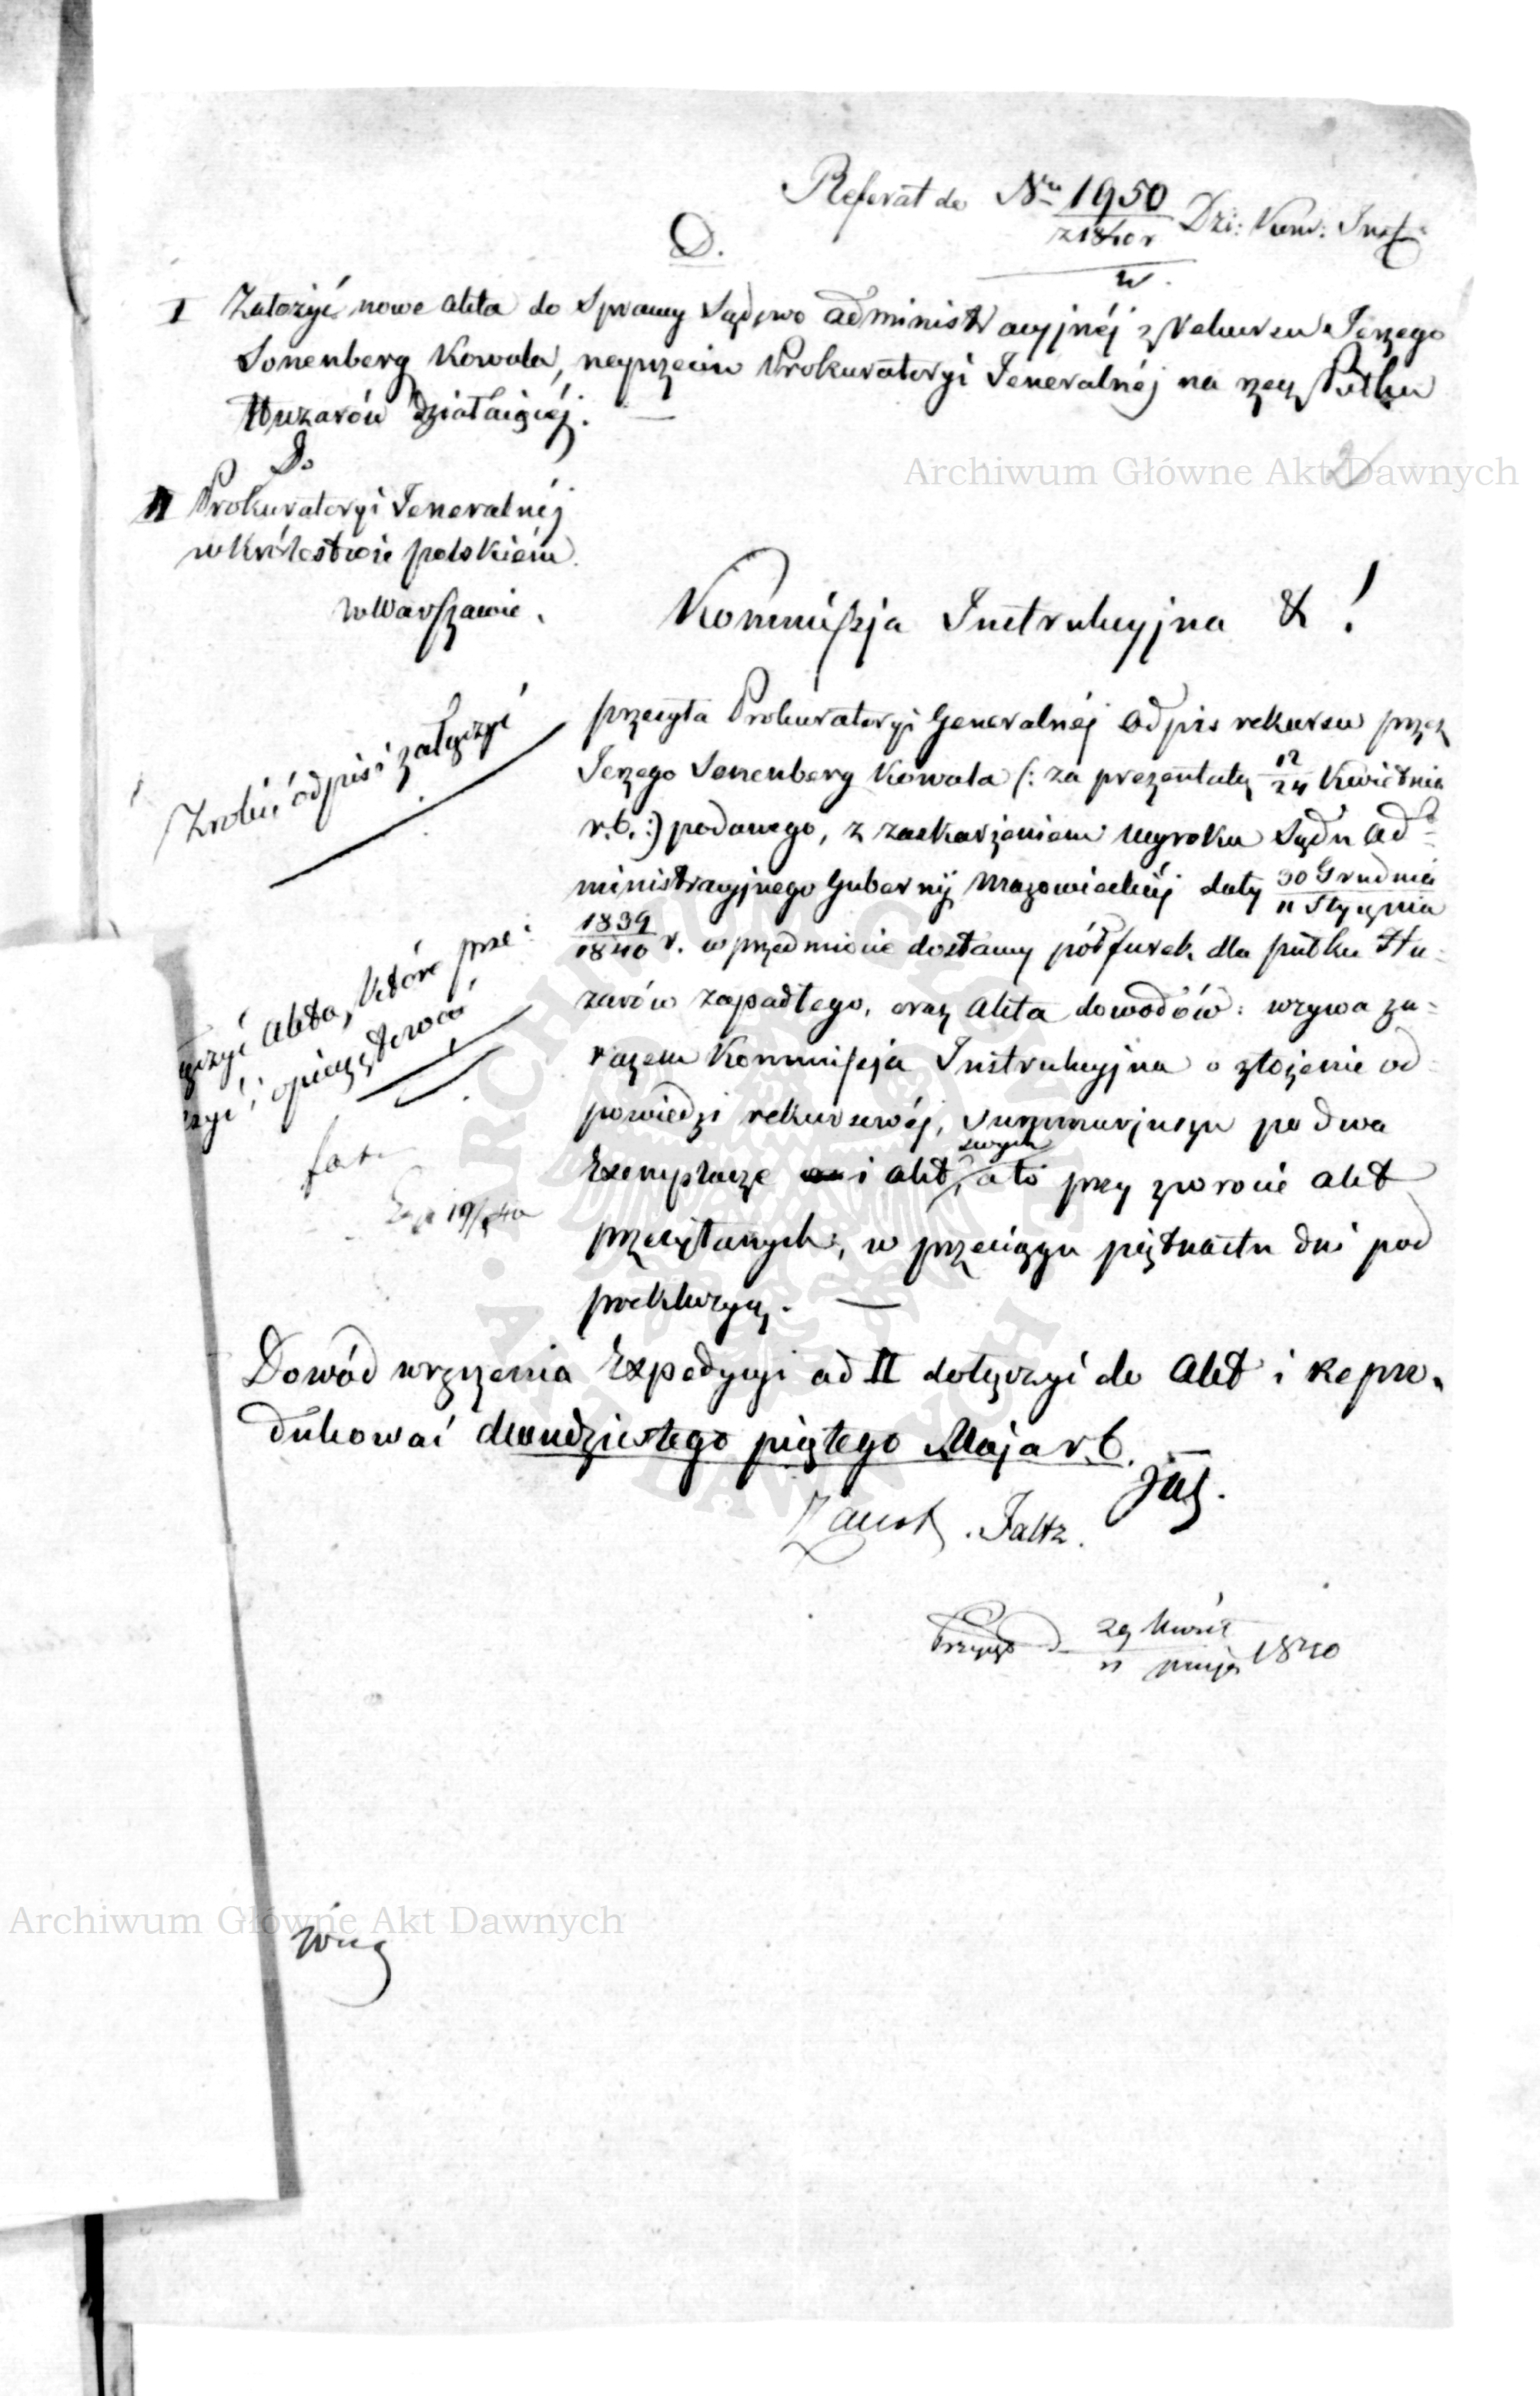 Referat do Nru 1950 Dzi: Kom: Inst:
z 1840 r
D.
I Założyć nowe akta do Sprawy Sądowo administracyjnéj z rekursu Jerzego
Sonenberg Kowala, naprzeciw Prokuratoryi Jeneralnéj na rzecz Pułku
Huzarów działaiącéj. —
Do
II Prokuratoryi Jeneralnéj
w Królestwie polskiém
w Warszawie.
Kommissja Instrukcyjna & !
Zrobić odpis i załączyć
przesyła Prokuratoryi Generalnéj odpis rekursu przez
Jerzego Sonenberg Kowala (: za prezentatą 12/24 Kwietnia
r. b. :) podanego, z zaskarżeniem wyroku Sądu Ad=
ministracyjnego Gubernij Mazowieckiéj daty 30 Grudnia/11 Stycznia
1839/1840 r. w przedmiocie dostawy półfurek dla pułku Hu=
zarów zapadłego, oraz akta dowodów: wzywa za=
razem Kommissja Instrukcyjna o złożenie od=
powiedzi rekursowéj, summarjuszu po dwa
Exemplarze i akt swych, a to przy zwrocie akt
przesyłanych, w przeciągu piętnastu dni pod
prekluzyą. —
akta, które prze=
i opieczętować
Dowód wręczenia Expedycyi ad II dołączyć do akt i Repro=
dukować dwudziestego piątego Maja r. b.
Faltz.
29 Kwiet/11 maja 1840
Archiwum Główne Akt Dawnych
Archiwum Główne Akt Dawnych